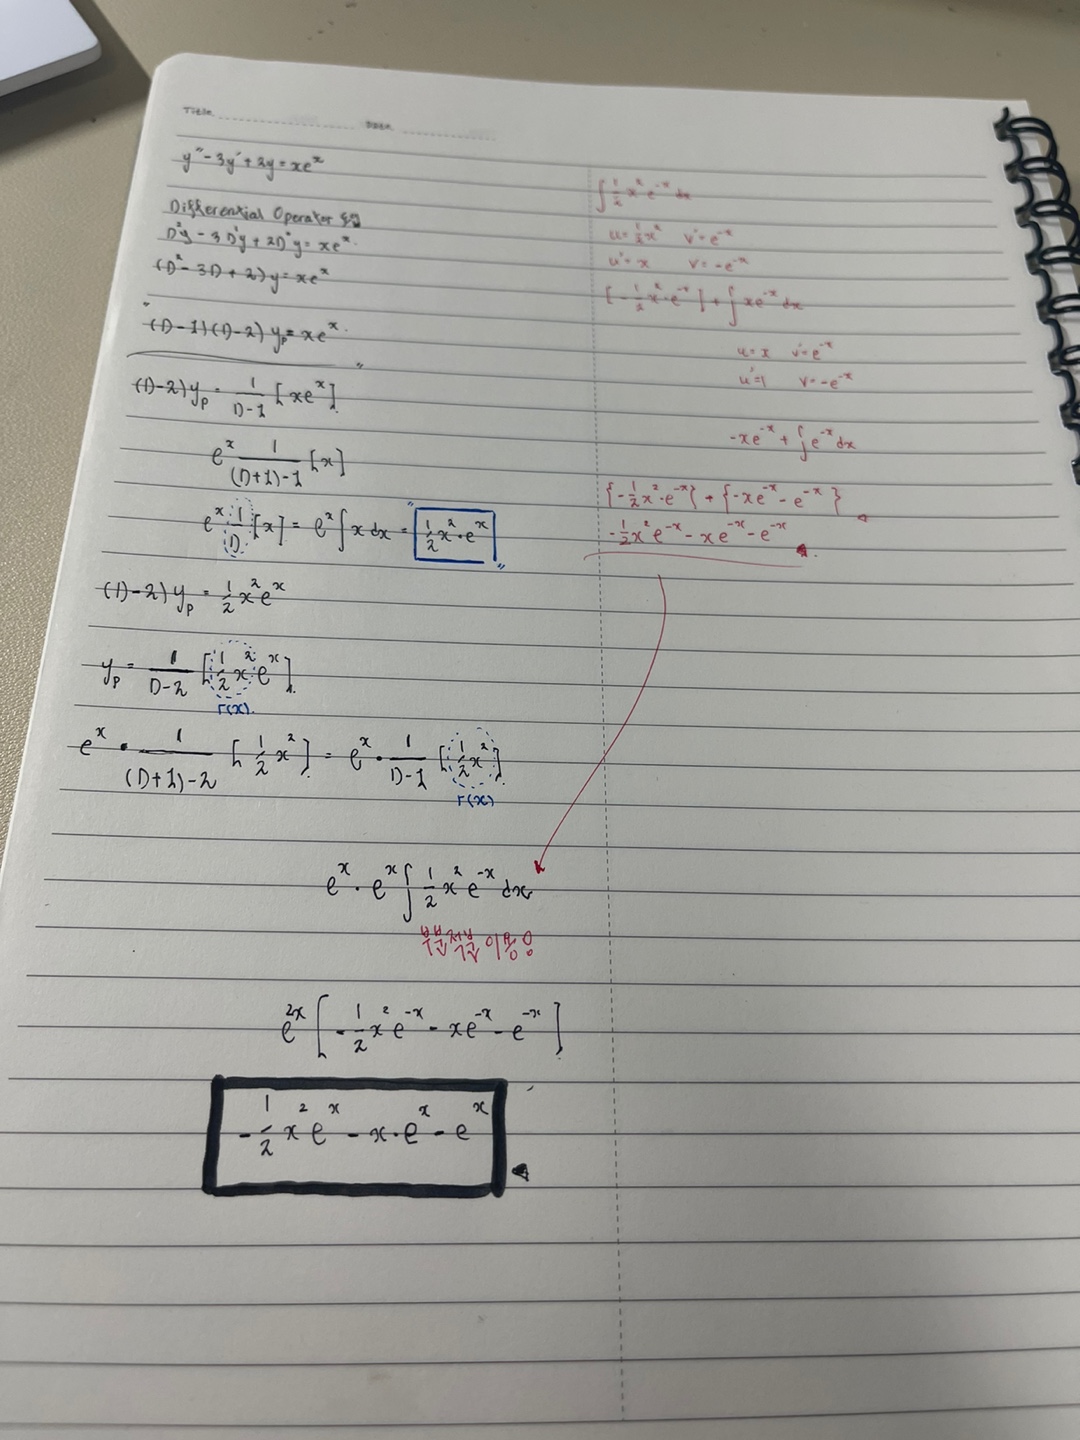 Title
Date
y″ - 3y′ + 2y = xe^x
Differential Operator
D²y - 3D¹y + 2D⁰y = xe^x.
(D² - 3D + 2)y = xe^x
(D-1)(D-2) y_p = xe^x.
(D-2)y_p = 1/(D-1) [xe^x].
e^x 1/((D+1)-1) [x]
e^x · 1/D [x] = e^x ∫ x dx = "1/2 x² · e^x"
(D-2) y_p = 1/2 x² e^x
y_p = 1/(D-2) [1/2 x² e^x].
r(x).
e^x · 1/((D+1)-2) [1/2 x²]. = e^x · 1/(D-1) [1/2 x²].
r(x)
e^x · e^x ∫ 1/2 x² e^-x dx
e^2x [-1/2 x² e^-x - xe^-x - e^-x].
-1/2 x² e^x - x·e^x - e^x
∫ 1/2 x² e^-x dx
u = 1/2 x² v′ = e^-x
u′ = x v = -e^-x
[-1/2 x² · e^-x] + ∫ xe^-x dx
u = x v′ = e^-x
u′ = 1 v = -e^-x
-xe^-x + ∫ e^-x dx
{-1/2 x² · e^-x} + {-xe^-x - e^-x}
-1/2 x² e^-x - xe^-x - e^-x